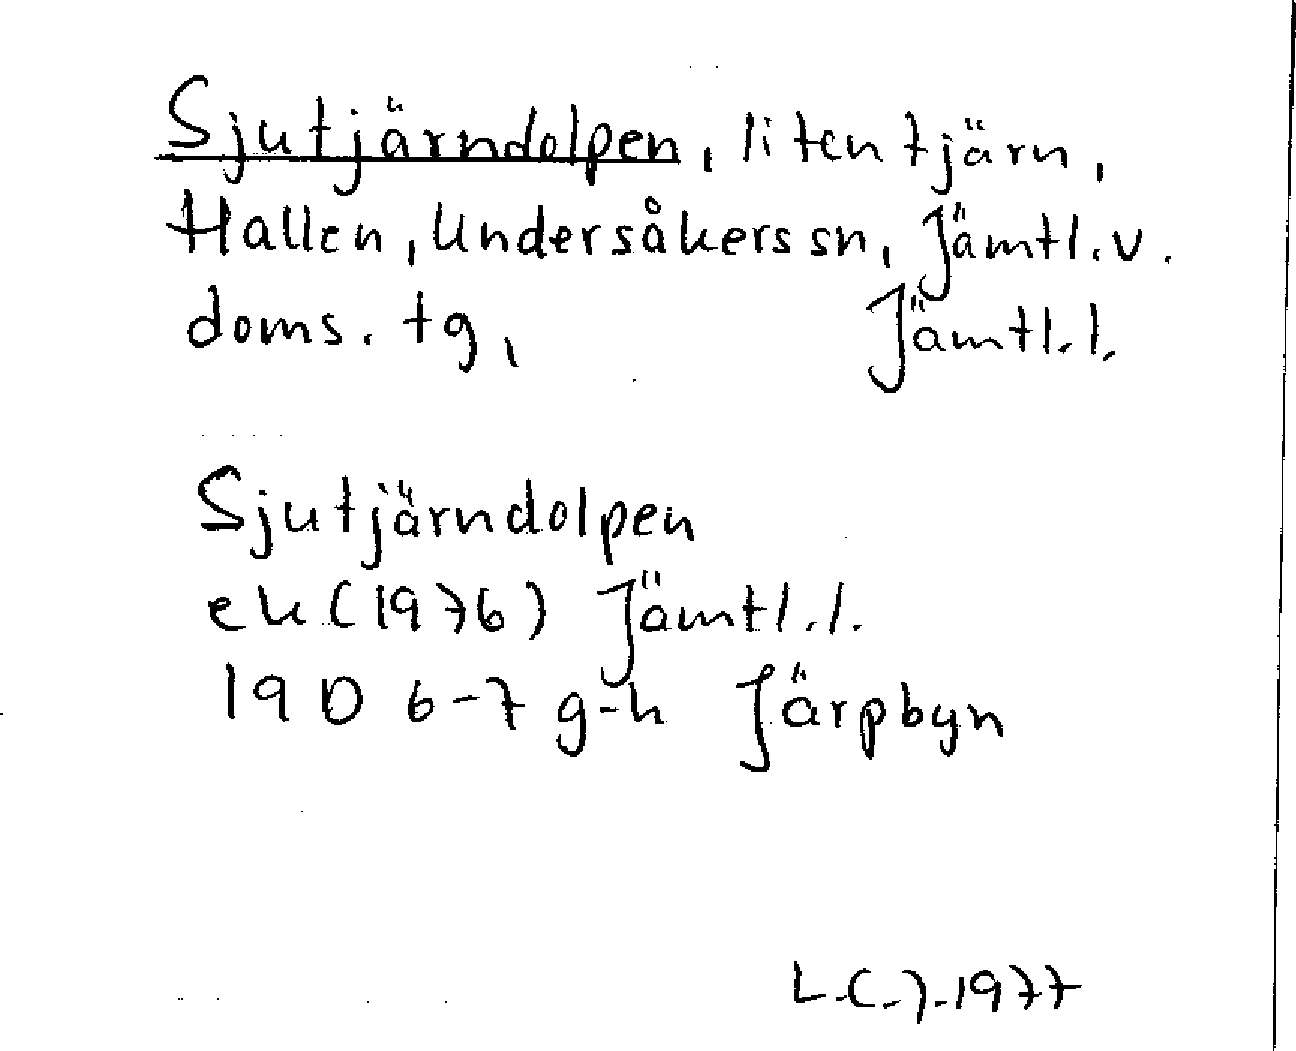 Sjutjärndolpen, liten tjärn,
Hallen, Undersåkers sn, Jämtl. v.
doms. tg, Jämtl. l.
Sjutjärndolpen
ek (1976) Jämtl. l.
19 D 6-7 g-h Järpbyn
L-C-J-1977